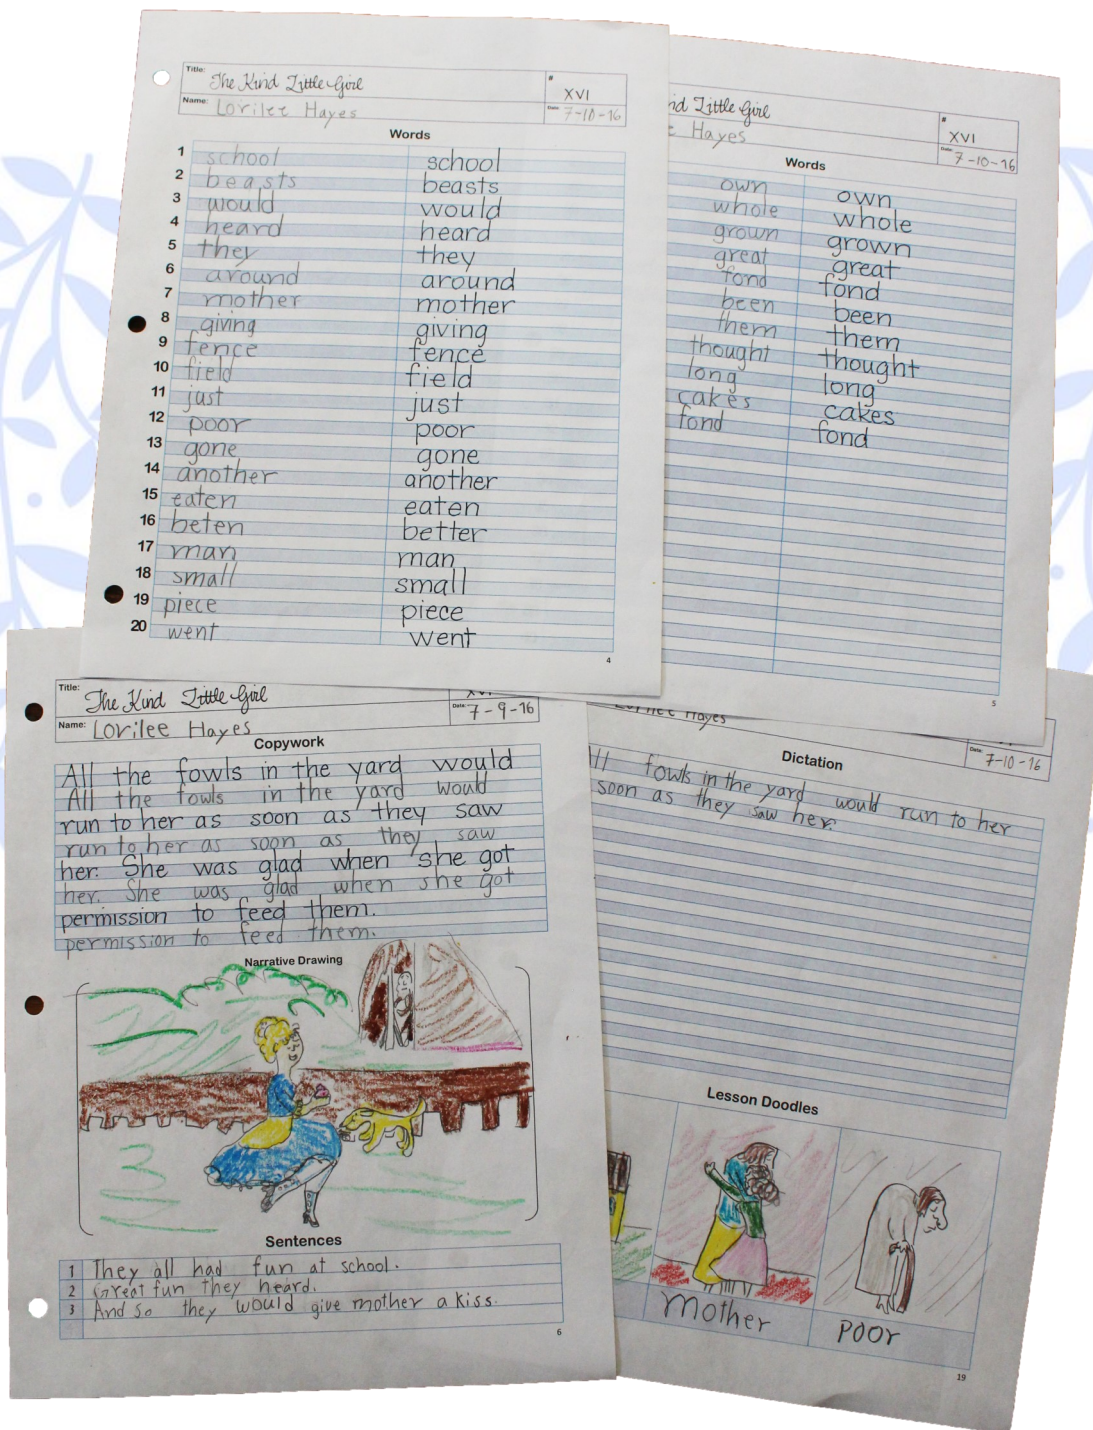 Title: The Kind Little Girl
# XVI
Name: Lorilee Hayes
Date: 7-10-16
Words
1 school school
2 beasts beasts
3 would would
4 heard heard
5 they they
6 around around
7 mother mother
8 giving giving
9 fence fence
10 field field
11 just just
12 poor poor
13 gone gone
14 another another
15 eaten eaten
16 beten better
17 man man
18 small small
19 piece piece
20 went went
4
nd Little Girl
# XVI
Hayes
Date: 7-10-16
Words
own own
whole whole
grown grown
great great
fond fond
been been
them them
thought thought
long long
cakes cakes
fond fond
5
Title: The Kind Little Girl
Name: Lorilee Hayes
Date: 7-9-16
Copywork
All the fowls in the yard would
All the fowls in the yard would
run to her as soon as they saw
run to her as soon as they saw
her. She was glad when she got
her. She was glad when she got
permission to feed them.
permission to feed them.
Narrative Drawing
Sentences
1 They all had fun at school.
2 Great fun they heard.
3 And so they would give mother a kiss.
6
Hayes
Date: 7-10-16
Dictation
All fowls in the yard would run to her
soon as they saw her.
Lesson Doodles
Mother
Poor
19